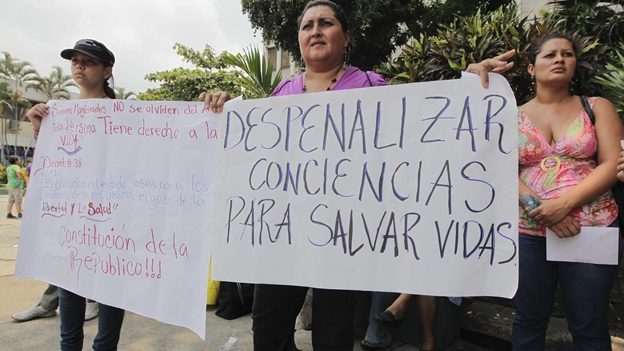 Buenos Magistrados No se olviden del Art
toda Persona Tiene derecho a la
Vida
Decreto # 38
de la
libertad y La Salud"
Constitución de la
República!!!
DESPENALIZAR
CONCIENCIAS
PARA SALVAR VIDAS.